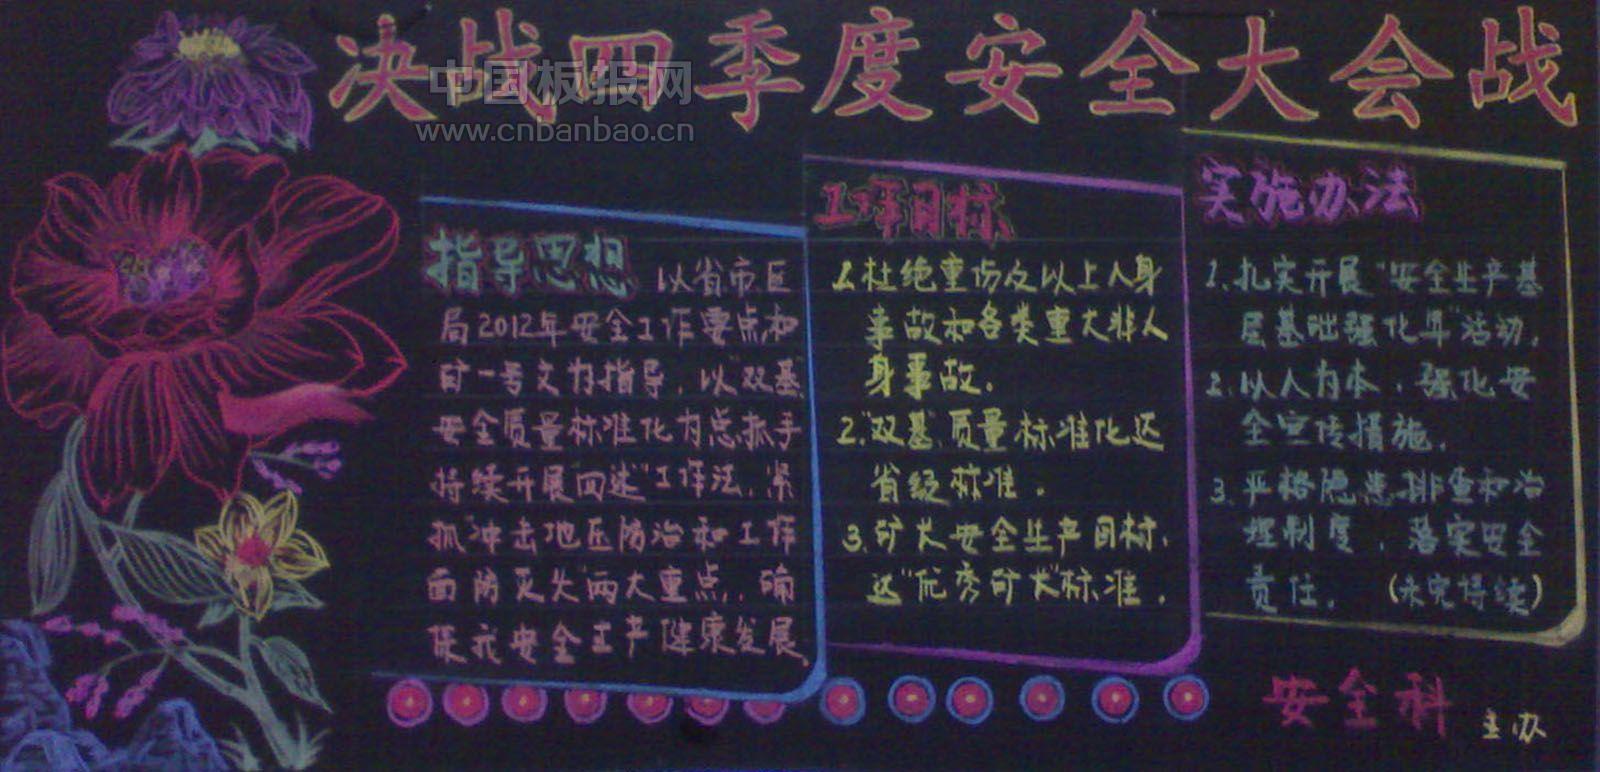 决战四季度安全大会战
中国板报网
www.cnbanbao.cn
指导思想
以省市区
局2012年安全工作要点和
矿一号文为指导，以"双基
安全质量标准化为总抓手
持续开展"面述"工作法，紧
抓"冲击地压防治和工作
面防灭火"两大重点，确
保我安全生产健康发展。
工作目标
1.杜绝重伤及以上人身
事故和各类重大非人
身事故。
2."双基"质量标准化达
省级标准。
3.矿大安全生产目标，
达"优秀矿大"标准。
实施办法
1.扎实开展"安全生产基
层基础强化年"活动，
2.以人为本，强化安
全宣传措施。
3.严格隐患排查和治
理制度，落实安全
责任。(未完待续)
安全科
主办